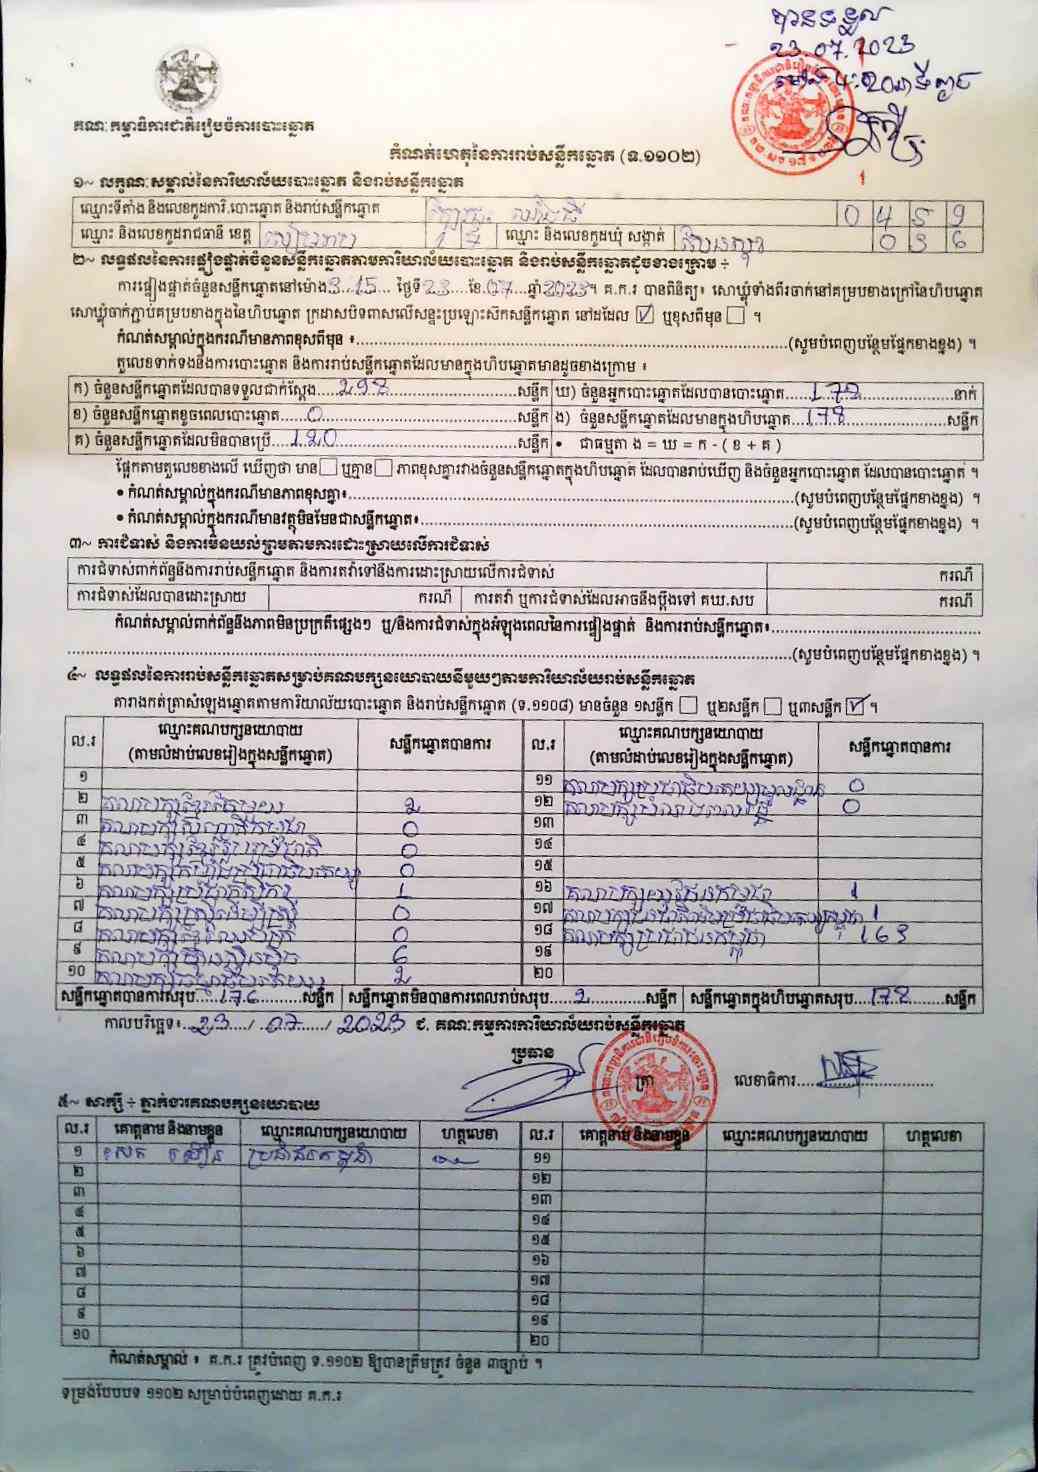 បានទទួល
23.07.2023
គណៈកម្មាធិការជាតិរៀបចំការបោះឆ្នោត
កំណត់ហេតុនៃការរាប់សន្លឹកឆ្នោត (ទ.១១០២)
១~ លក្ខណៈសម្គាល់នៃការិយាល័យបោះឆ្នោត និងរាប់សន្លឹកឆ្នោត
ឈ្មោះទីតាំង និងលេខកូដការិ.បោះឆ្នោត និងរាប់សន្លឹកឆ្នោត 0 4 5 9
ឈ្មោះ និងលេខកូដរាជធានី ខេត្ត សៀមរាប 1 7 ឈ្មោះ និងលេខកូដឃុំ សង្កាត់ 0 3 6
២~ លទ្ធផលនៃការផ្ទៀងផ្ទាត់ចំនួនសន្លឹកឆ្នោតតាមការិយាល័យបោះឆ្នោត និងរាប់សន្លឹកឆ្នោតដូចខាងក្រោម ÷
ការផ្ទៀងផ្ទាត់ចំនួនសន្លឹកឆ្នោតនៅម៉ោង 3:15 ថ្ងៃទី 23 ខែ 07 ឆ្នាំ 2023 ។ គ.ក.រ បានពិនិត្យ៖ សោឃ្លុំទាំងពីរចាក់នៅគម្របខាងក្រៅនៃហិបឆ្នោត
សោឃ្លុំចាក់ភ្ជាប់គម្របខាងក្នុងនៃហិបឆ្នោត ក្រដាសបិទពាសលើសន្ទះប្រឡោះស៊កសន្លឹកឆ្នោត នៅដដែល ☑ ឬខុសពីមុន ☐ ។
កំណត់សម្គាល់ក្នុងករណីមានភាពខុសពីមុន ៖ (សូមបំពេញបន្ថែមផ្នែកខាងខ្នង) ។
តួលេខទាក់ទងនឹងការបោះឆ្នោត និងការរាប់សន្លឹកឆ្នោតដែលមានក្នុងហិបឆ្នោតមានដូចខាងក្រោម ៖
ក) ចំនួនសន្លឹកឆ្នោតដែលបានទទួលជាក់ស្តែង 298 សន្លឹក ឃ) ចំនួនអ្នកបោះឆ្នោតដែលបានបោះឆ្នោត 178 នាក់
ខ) ចំនួនសន្លឹកឆ្នោតខូចពេលបោះឆ្នោត 0 សន្លឹក ង) ចំនួនសន្លឹកឆ្នោតដែលមានក្នុងហិបឆ្នោត 178 សន្លឹក
គ) ចំនួនសន្លឹកឆ្នោតដែលមិនបានប្រើ 120 សន្លឹក • ជាធម្មតា ង = ឃ = ក - ( ខ + គ )
ផ្អែកតាមតួលេខខាងលើ ឃើញថា មាន ☐ ឬគ្មាន ☐ ភាពខុសគ្នារវាងចំនួនសន្លឹកឆ្នោតក្នុងហិបឆ្នោត ដែលបានរាប់ឃើញ និងចំនួនអ្នកបោះឆ្នោត ដែលបានបោះឆ្នោត ។
• កំណត់សម្គាល់ក្នុងករណីមានភាពខុសគ្នា៖ (សូមបំពេញបន្ថែមផ្នែកខាងខ្នង) ។
• កំណត់សម្គាល់ក្នុងករណីមានវត្ថុមិនមែនជាសន្លឹកឆ្នោត៖ (សូមបំពេញបន្ថែមផ្នែកខាងខ្នង) ។
៣~ ការជំទាស់ និងការមិនយល់ព្រមតាមការដោះស្រាយលើការជំទាស់
ការជំទាស់ពាក់ព័ន្ធនឹងការរាប់សន្លឹកឆ្នោត និងការតវ៉ាទៅនឹងការដោះស្រាយលើការជំទាស់ ករណី
ការជំទាស់ដែលបានដោះស្រាយ ករណី ការតវ៉ា ឬការជំទាស់ដែលអាចនឹងប្តឹងទៅ គឃ.សប ករណី
កំណត់សម្គាល់ពាក់ព័ន្ធនឹងភាពមិនប្រក្រតីផ្សេងៗ ឬ/និងការជំទាស់ក្នុងអំឡុងពេលនៃការផ្ទៀងផ្ទាត់ និងការរាប់សន្លឹកឆ្នោត៖
(សូមបំពេញបន្ថែមផ្នែកខាងខ្នង) ។
៤~ លទ្ធផលនៃការរាប់សន្លឹកឆ្នោតសម្រាប់គណបក្សនយោបាយនីមួយៗតាមការិយាល័យរាប់សន្លឹកឆ្នោត
តារាងកត់ត្រាសំឡេងឆ្នោតតាមការិយាល័យបោះឆ្នោត និងរាប់សន្លឹកឆ្នោត (ទ.១១០៨) មានចំនួន ១សន្លឹក ☐ ឬ២សន្លឹក ☐ ឬ៣សន្លឹក ☑ ។
ល.រ ឈ្មោះគណបក្សនយោបាយ (តាមលំដាប់លេខរៀងក្នុងសន្លឹកឆ្នោត) សន្លឹកឆ្នោតបានការ ល.រ ឈ្មោះគណបក្សនយោបាយ (តាមលំដាប់លេខរៀងក្នុងសន្លឹកឆ្នោត) សន្លឹកឆ្នោតបានការ
១ ១១ 0
២ គណបក្សខ្មែរតែមួយ 2 ១២ 0
៣ 0 ១៣
៤ 0 ១៤
៥ 0 ១៥
៦ 1 ១៦ 1
៧ គណបក្សស្ត្រីដើម្បីស្ត្រី 0 ១៧ 1
៨ 0 ១៨ គណបក្សប្រជាជនកម្ពុជា 163
៩ 6 ១៩
១០ 2 ២០
សន្លឹកឆ្នោតបានការសរុប 176 សន្លឹក សន្លឹកឆ្នោតមិនបានការពេលរាប់សរុប 2 សន្លឹក សន្លឹកឆ្នោតក្នុងហិបឆ្នោតសរុប 178 សន្លឹក
កាលបរិច្ឆេទ៖ 23 / 07 / 2023 ជ. គណៈកម្មការការិយាល័យរាប់សន្លឹកឆ្នោត
ប្រធាន ត្រា លេខាធិការ
៥~ សាក្សី ÷ ភ្នាក់ងារគណបក្សនយោបាយ
ល.រ គោត្តនាម និងនាមខ្លួន ឈ្មោះគណបក្សនយោបាយ ហត្ថលេខា ល.រ គោត្តនាម និងនាមខ្លួន ឈ្មោះគណបក្សនយោបាយ ហត្ថលេខា
១ ប្រជាជនកម្ពុជា ១១
២ ១២
៣ ១៣
៤ ១៤
៥ ១៥
៦ ១៦
៧ ១៧
៨ ១៨
៩ ១៩
១០ ២០
កំណត់សម្គាល់ ៖ គ.ក.រ ត្រូវបំពេញ ទ.១១០២ ឱ្យបានត្រឹមត្រូវ ចំនួន ៣ច្បាប់ ។
ទម្រង់បែបបទ ១១០២ សម្រាប់បំពេញដោយ គ.ក.រ